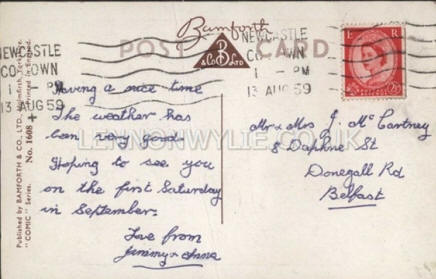 Bamforth
POST CARD
B
& Co LTD
NEWCASTLE
CO DOWN
1 - PM
13 AUG 59
NEWCASTLE
CO DOWN
1 - PM
13 AUG 59
E R
Published by BAMFORTH & CO., LTD., Holmfirth, Yorkshire.
"COMIC" Series. No. 1608 + Printed in England.
LENNONWYLIE.CO.UK
Having a nice time
The weather has
been very good.
Hoping to see you
on the first Saturday
in September.
Love from
Jimmy + Anna
Mr & Mrs J. McCartney
8 Daphne St
Donegall Rd
Belfast